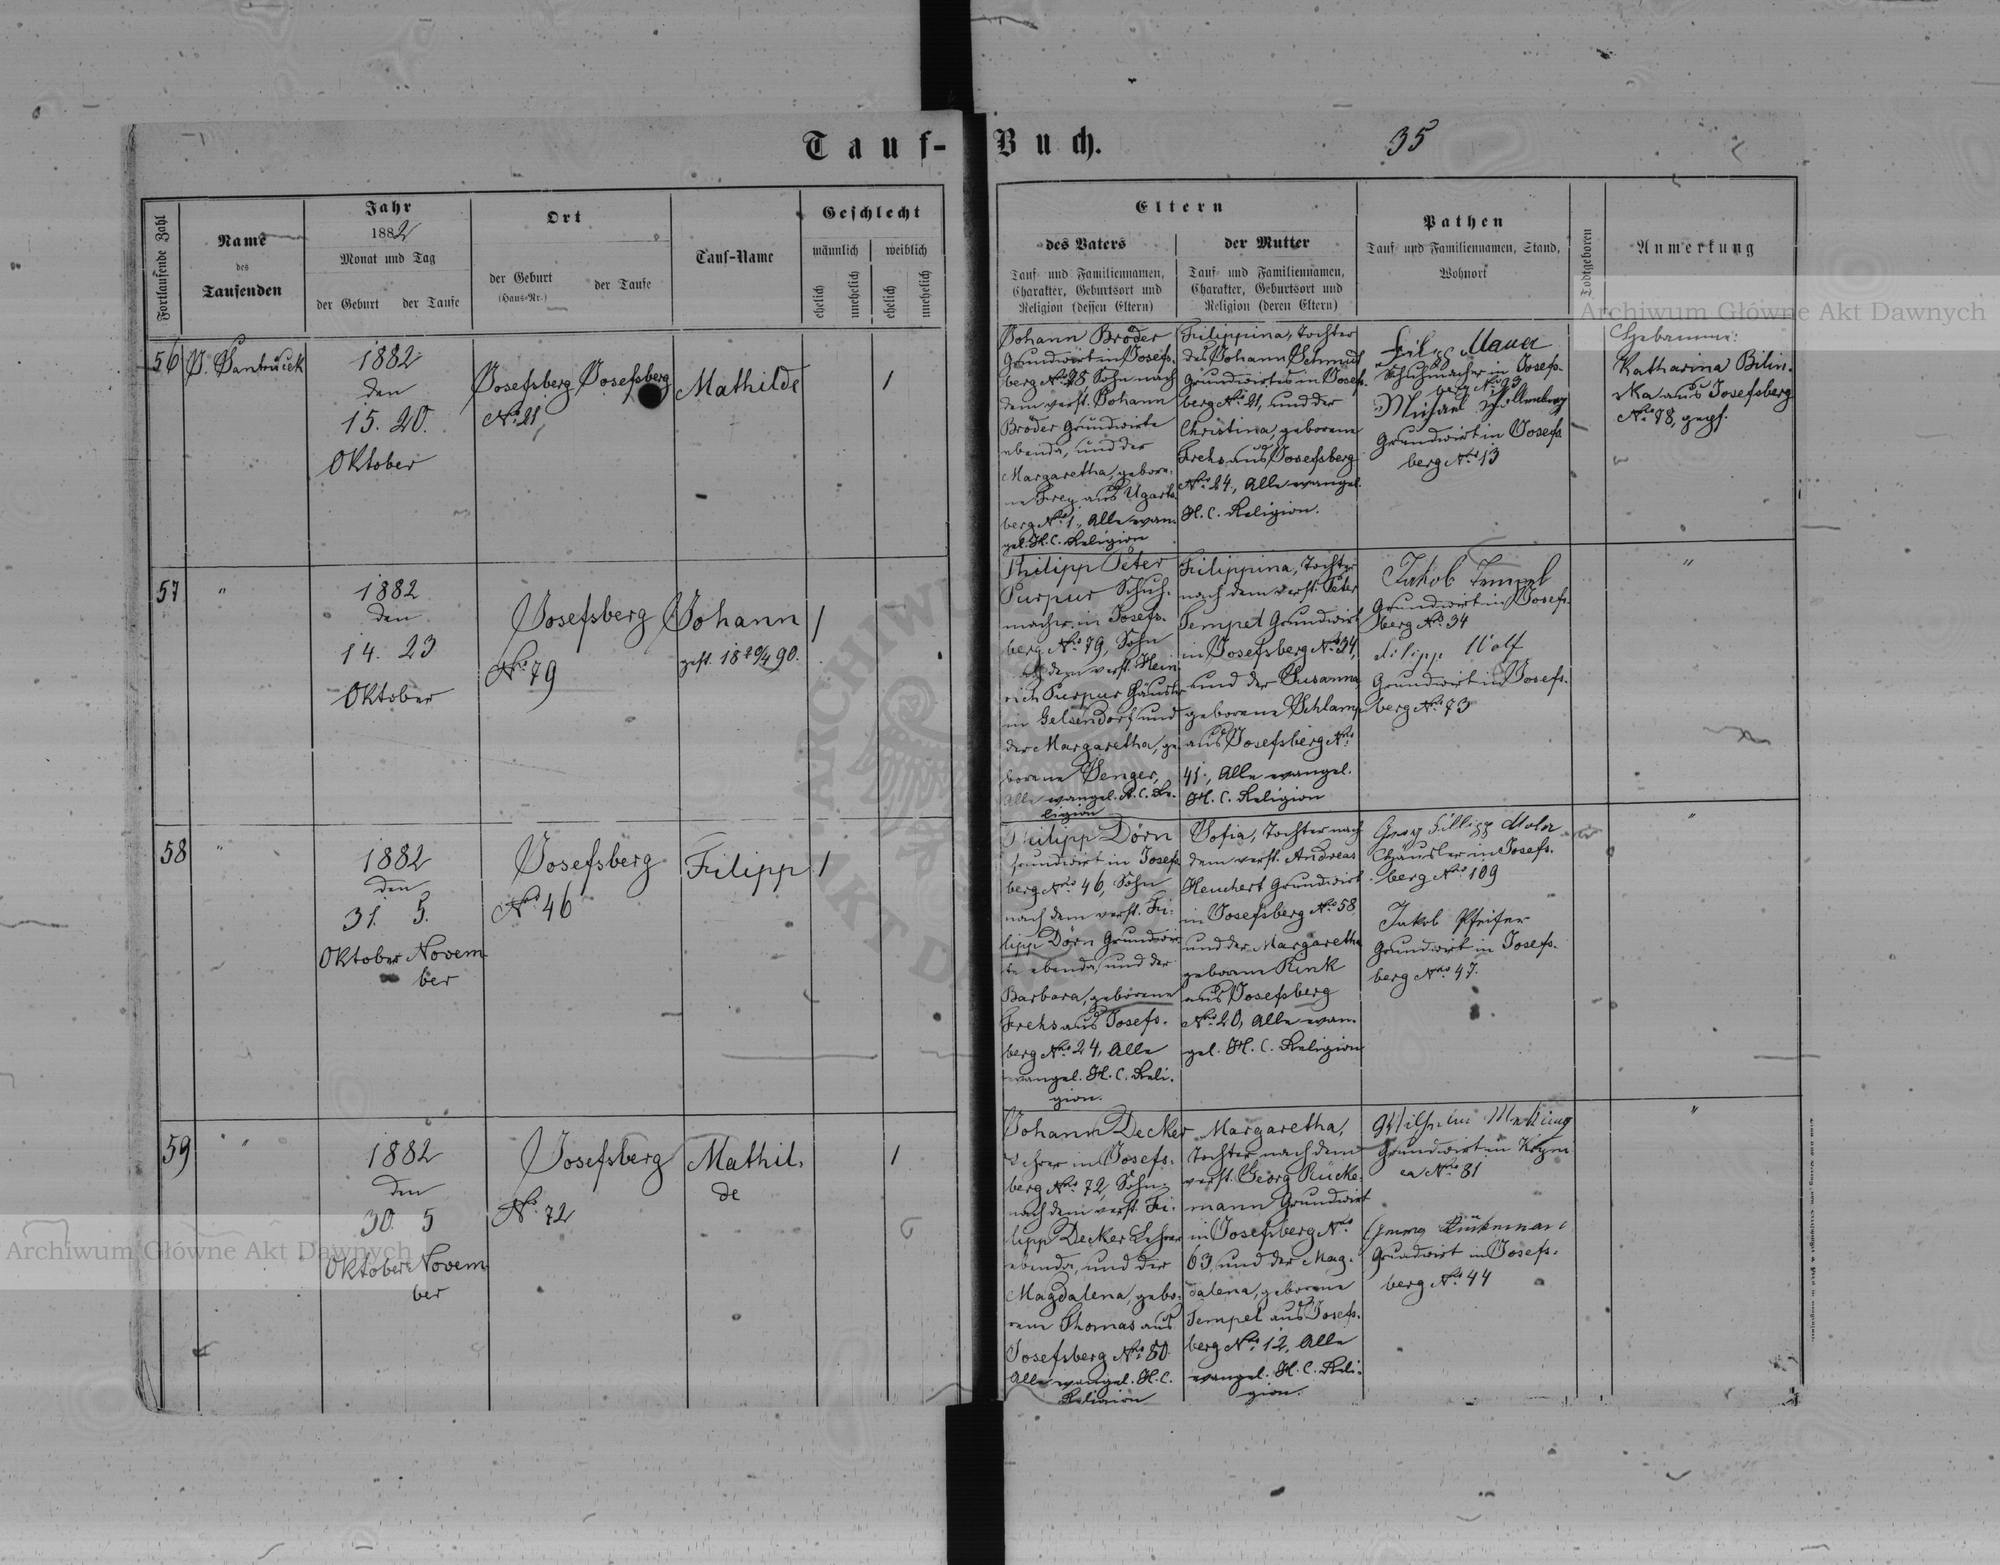 Tauf-Buch.
35
Fortlaufende Zahl
Name
des
Taufenden
Jahr
1882
Monat und Tag
der Geburt
der Taufe
Ort
der Geburt
(Haus-Nr.)
der Taufe
Tauf-Name
Geschlecht
männlich
weiblich
ehelich
unehelich
ehelich
unehelich
Eltern
des Vaters
Tauf- und Familiennamen,
Charakter, Geburtsort und
Religion (dessen Eltern)
der Mutter
Tauf- und Familiennamen,
Charakter, Geburtsort und
Religion (deren Eltern)
Pathen
Tauf- und Familiennamen, Stand,
Wohnort
Todtgeboren
Anmerkung
56
1882
den
15. 20.
Oktober
Josefsberg
No. 21
Josefsberg
Mathilde
1
Johann Broder
Grundwirt in Josefs-
berg No. 28, Sohn nach
dem verst. Johann
Broder Grundwirte
ebenda, und der
Margaretha, gebore-
ne Frey aus Ugarts
berg No. 1, Alle evan-
gel. H. C. Religion
Filippina, Tochter
des Johann Schmidt
Grundwirtes in Josefs-
berg No. 21, und der
Christina, geborene
Frehs aus Josefsberg
No. 24, Alle evangel.
H. C. Religion.
Filipp Mauer
Schuhmacher in Josefs-
berg No. 93
Grundwirt in Josefs
berg No. 13
Hebamme:
Katharina Bilin-
ska aus Josefsberg
No. 78, gepr.
57
"
1882
den
14. 23
Oktober
Josefsberg
No. 79
Johann
gest. 18 20/4 90.
1
Philipp Peter
Purpur Schuh-
macher in Josefs-
berg No. 79, Sohn
nach dem verst. Hein
rich Purpur Häusler
in Gelsendorf und
der Margaretha, ge-
borene Senger,
Alle evangel. A. C. Re-
ligion
Filippina, Tochter
nach dem verst. Peter
Tempel Grundwirt
in Josefsberg No. 34,
und der Susanna
geborene Schlamp
aus Josefsberg No.
41, Alle evangel.
H. C. Religion
Jakob Tempel
Grundwirt in Josefs-
berg No. 34
Filipp Wolf
Grundwirt in Josefs-
berg No. 73
"
58
"
1882
den
31. 5.
Oktober Novem
ber
Josefsberg
No. 46
Filipp
1
Philipp Dörn
Grundwirt in Josefs
berg No. 46, Sohn
nach dem verst. Fi-
lipp Dörn Grundwir-
te ebenda, und der
Barbara, geborene
Frehs aus Josefs-
berg No. 24, Alle
evangel. H. C. Reli-
gion.
Sofia, Tochter nach
dem verst. Andreas
Heuchert Grundwirt
in Josefsberg No. 58
und der Margaretha
geborene Rink
aus Josefsberg
No. 20, Alle evan-
gel. H. C. Religion
Häusler in Josefs-
berg No. 109
Jakob Pfeifer
Grundwirt in Josefs-
berg No. 47.
"
59
"
1882
den
30. 5
Oktober Novem
ber
Josefsberg
No. 72
Mathil-
de
1
Johann Decker
Lehrer in Josefs-
berg No. 72, Sohn
nach dem verst. Fi-
lipp Decker Lehrer
ebenda, und der
Magdalena, gebo-
rene Thomas aus
Josefsberg No. 80
Alle evangel. H. C.
Religion
Margaretha,
Tochter nach dem
verst. Georg Rücke-
mann Grundwirt
in Josefsberg No.
63, und der Mag-
dalena, geborene
Tempel aus Josefs-
berg No. 12, Alle
evangel. H. C. Reli-
gion.
Grundwirt in
No. 81
Grundwirt in Josefs-
berg No. 44
"
Archiwum Główne Akt Dawnych
Archiwum Główne Akt Dawnych